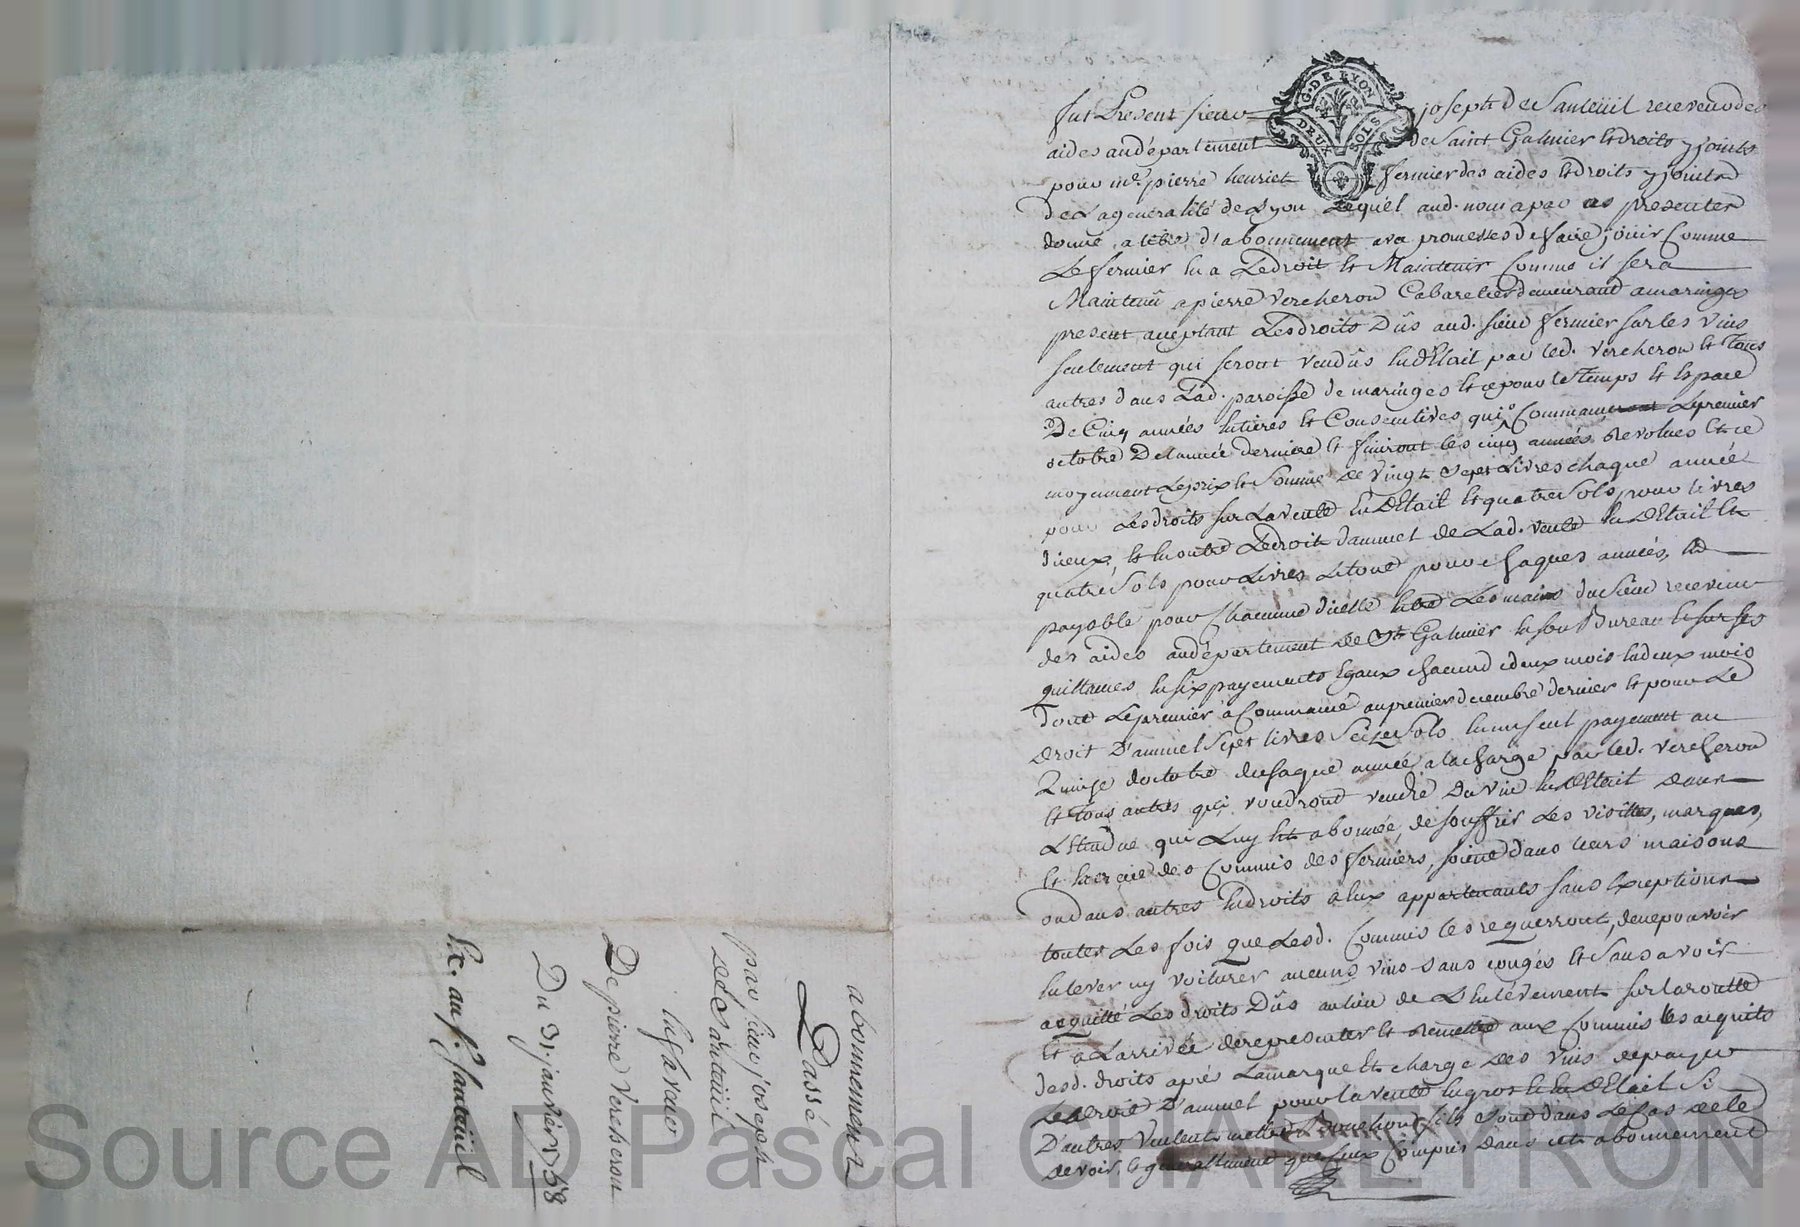 G. DE LYON
DEUX SOLS
fut Present sieur joseph De Santeüil receveur des
aides au département de Saint Galmier Et droits y joints
pour me. pierre henriet fermier des aides Et droits y joints
de La generalité de Lyon Lequel aud. nom a par ces presentes
donné a titre d'abonnement avec promesses de faire jouir Comme
Le fermier En a Le droit Et Maintenir Comme il sera
Maintenû a pierre Vercheron Cabaretier demeurant a maringes
present aceptant Les droits Dûs aud. sieur fermier sur les vins
seulement qui seront vendûs En Détail par led. Vercheron Et Tous
autres dans Lad. paroisse de maringes Et ce pour le Temps Et Espace
De Cinq années Entieres Et Consecutives qui Commencé Le premier
octobre De L'année derniere Et finiront les cinq années Revolues Et ce
moyennant Le prix Et Somme de Vingt Sept Livres chaque année
pour Les droits sur La vente En Détail Et quatre Sols pour livres
d'iceux, Et En outre Le droit d'annuel de Lad. vente En Détail Et
quatre Sols pour Livres Le tout pour chaques années,
payable pour Chacune d'icelle Entre Les mains du Sieur receveur
des aides au département de St Galmier En son Bureau Et sur ses
quittances En six payements Egaux chacun de deux mois En deux mois
dont Le premier a Commencé au premier decembre dernier Et pour Le
droit D'annuel Sept livres Seize Sols En un seul payement au
Quinze d'octobre de chaque année a la charge par led. Vercheron
Et tous autres qui voudront vendre Du Vin En Détail dans
L'Etendue qui Luy Est abonnée, de souffrir Les visittes, marques,
Et Exercice des Commis des fermiers, soient dans leurs maisons
ou dans autres Endroits a Eux appartenants sans Exceptions
toutes Les fois que Lesd. Commis les requerront, de ne pouvoir
Enlever ny voiturer aucuns vins sans congés Et sans avoir
acquitté Les droits Dûs au lieu de L'Enlévement sur la routte
Et a L'arrivée de representer Et remettre aux Commis les acquits
desd. droits après La marque Et charge des vins de payer
Le droit D'annuel pour la vente En gros Et En Détail Si
D'autres Veulent mettre Bouchon s'ils sont dans Le Cas de le
devoir, Et generallement que Ceux Compris dans cet abonnement
abonnement
Passé
par sieur joseph
de Santeüil
En faveur
De pierre Vercheron
Du 31. janvier 1768
Ex. au s. Santeüil
Source AD Pascal CHAREYRON